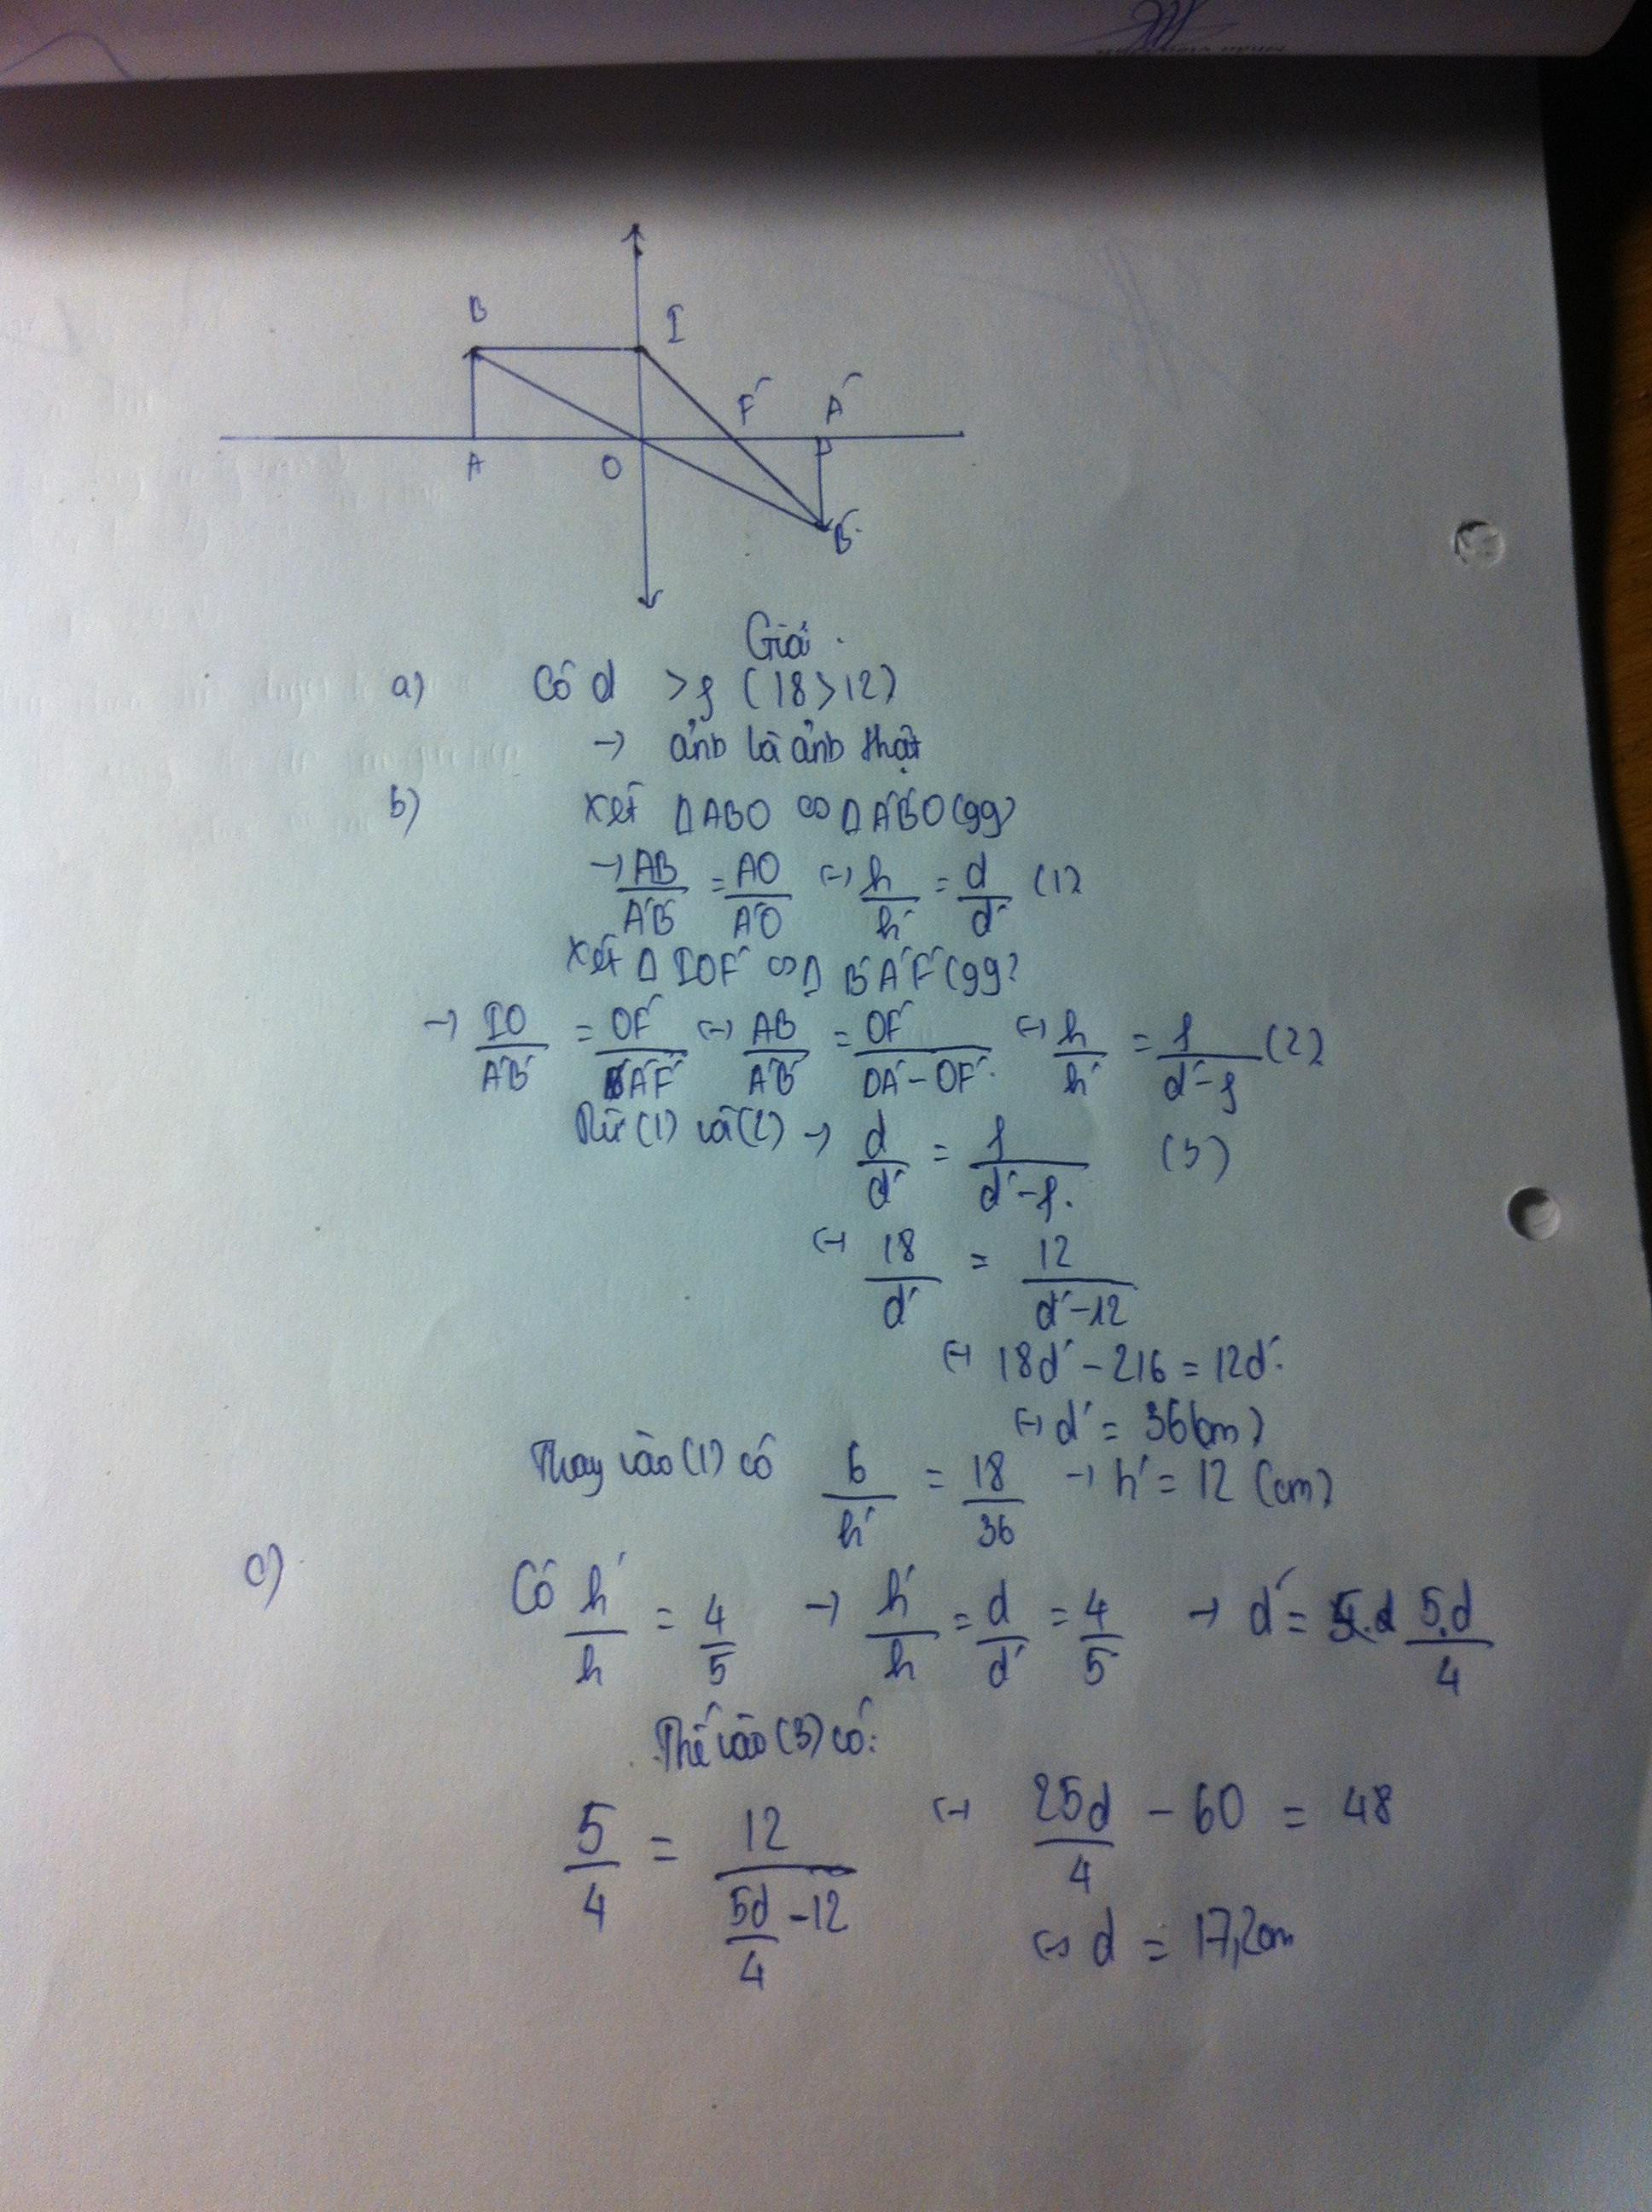 B
I
F' A'
A O
B'
Giải
a) Có d > f (18 > 12)
→ ảnh là ảnh thật
b) Xét ΔABO ∽ ΔA'B'O (gg)
→ AB/A'B' = AO/A'O ↔ h/h' = d/d' (1)
Xét Δ IOF' ∽ Δ B'A'F' (gg)
→ IO/A'B' = OF'/A'F' ↔ AB/A'B' = OF'/OA' - OF' ↔ h/h' = f/d' - f (2)
Từ (1) và (2) → d/d' = f/d' - f. (3)
↔ 18/d' = 12/d' - 12
↔ 18d' - 216 = 12d'
↔ d' = 36 (cm)
Thay vào (1) có 6/h' = 18/36 → h' = 12 (cm)
c) Có h'/h = 4/5 → h'/h = d/d' = 4/5 → d' = 5.d/4
Thế vào (3) có:
5/4 = 12/5d/4 - 12 ↔ 25d/4 - 60 = 48
↔ d = 17,2cm